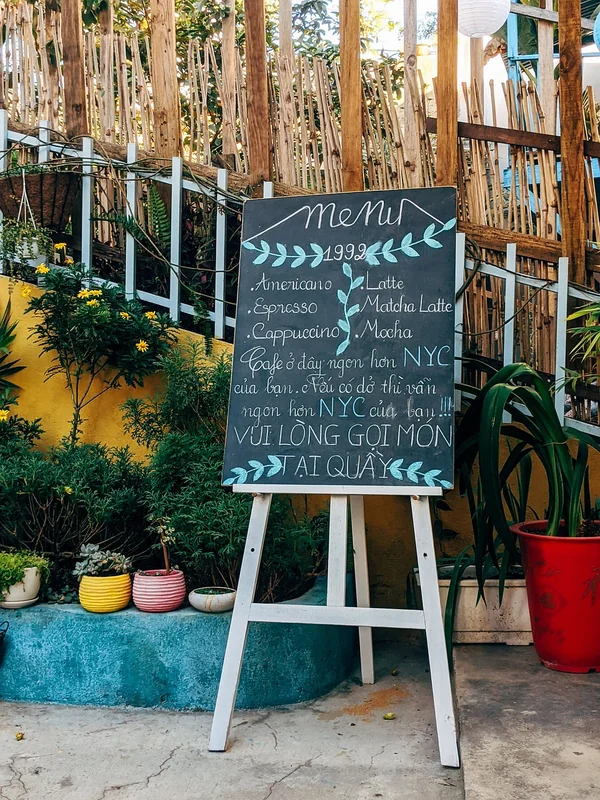 menu
1992
.Americano .Latte
.Espresso .Matcha Latte
.Cappuccino .Mocha
Cafe ở đây ngon hơn NYC
của bạn. Nếu có dở thì vẫn
ngon hơn NYC của bạn!!!
VUI LÒNG GỌI MÓN
TẠI QUẦY